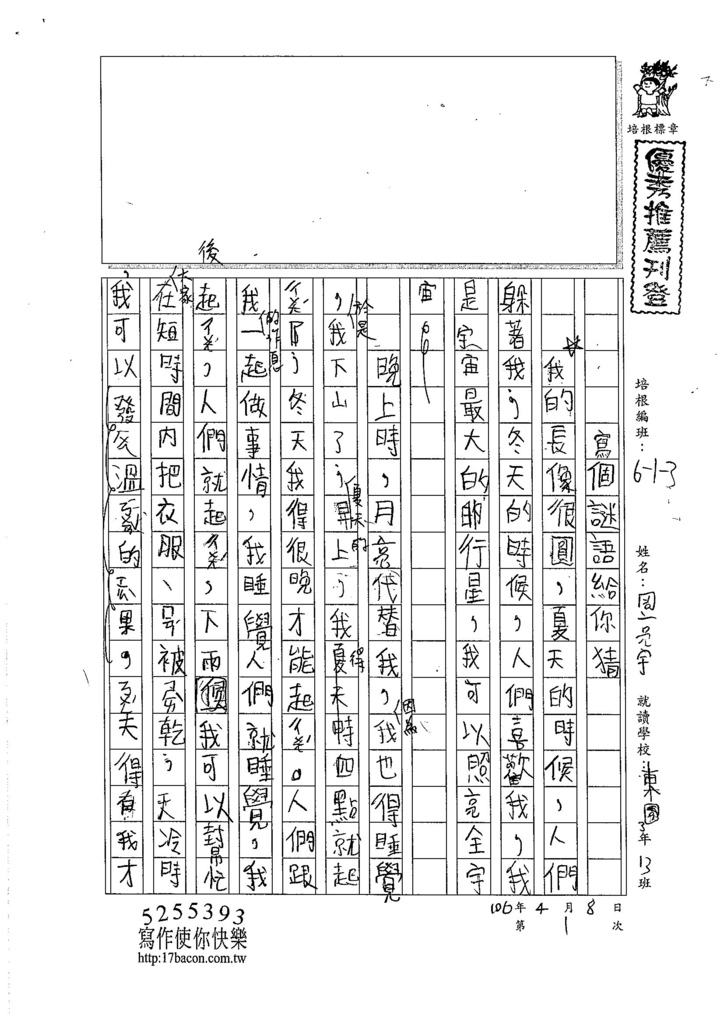 培根標章
優秀推薦刊登
培根編班：6-1-3
姓名：周亮宇
就讀學校：東園3年13班
106年4月8日
第1次
寫個謎語給你猜
我的長像很圓，夏天的時候，人們
躲著我，冬天的時候，人們喜歡我，我
是宇宙最大的的行星，我可以照亮全宇
宙。
晚上時，月亮代替我，我也得睡覺
因為
，我下山了，早上，我夏天時四點就起
於是
夏天的
得
冬天我得很晚才能起 。人們跟
我一起做事情，我睡覺人們就睡覺，我
的作息
起 ，人們就起 ，下雨後我可以幫忙
後
在短時間內把衣服、 被 乾，天冷時
大家
，我可以發 溫 的 果。 天得有我才
5255393
寫作使你快樂
http:17bacon.com.tw